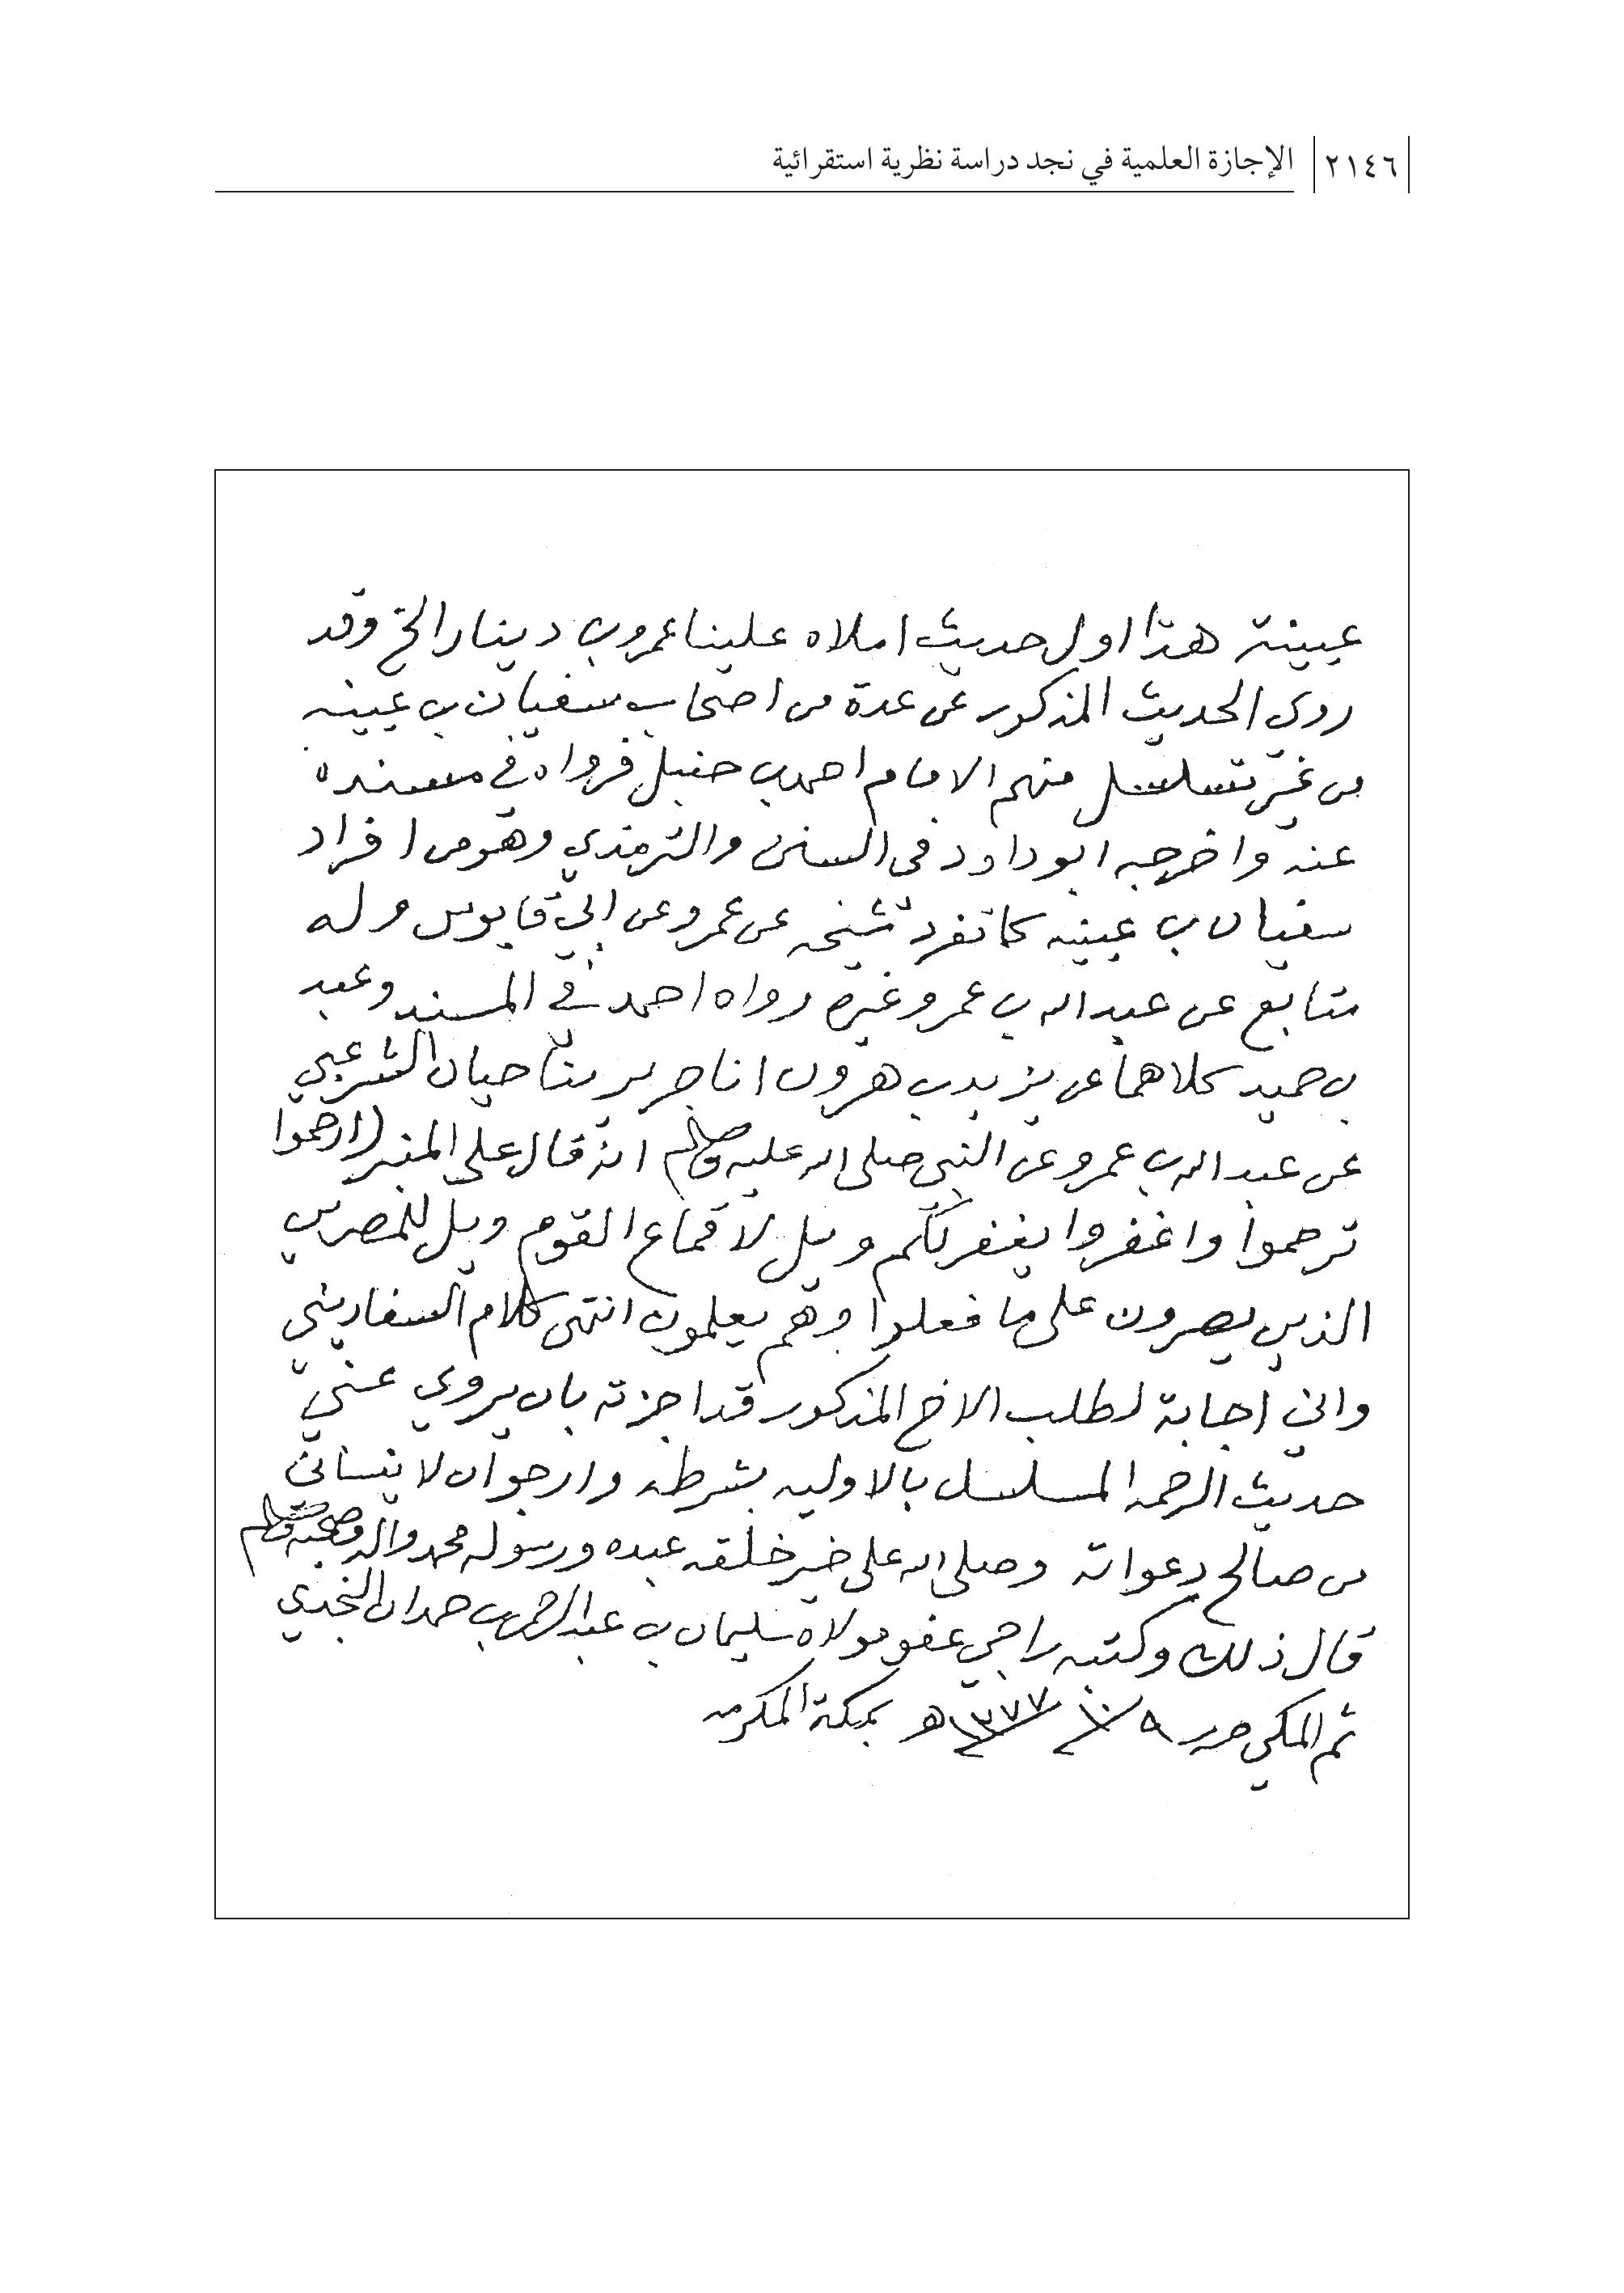 ٢١٤٦ الإجازة العلمية في نجد دراسة نظرية استقرائية
عيينة هذا اول حديث املاه علينا عمرو بن دينار الخ وقد
روى الحديث المذكور عن عدة من اصحاب سفيان بن عيينه
من غير تسلسل منهم الامام احمد بن حنبل فرواه في مسنده
عنه واخرجه ابو داود في السنن والترمذي وهو من افراد
سفيان بن عيينه كما تفرد شيخه عن عمرو عن ابي قابوس وله
متابع عن عبد الله بن عمرو غيره رواه احمد في المسند وعبد
بن حميد كلاهما عن يزيد بن هرون انا جرير ثنا حيان الشرعبي
عن عبد الله بن عمرو عن النبي صلى الله عليه وسلم انه قال على المنبر (ارحموا
ترحموا واغفروا يغفر لكم ويل لاقماع القوم ويل للمصرين
الذين يصرون على ما فعلوا وهم يعلمون انتهى كلام السفاريني
واني اجابة لطلب الاخ المذكور قد اجزته بان يروي عني
حديث الرحمه المسلسل بالاوليه بشرطه وارجوان لا ينساني
من صالح دعواته وصلى الله على خير خلقه عبده ورسوله محمد واله وصحبه وسلم
قال ذلك وكتبه راجي عفو مولاه سليمان بن عبد الرحمن بن حمدان النجدي
ثم المكي حرر ٩/١٠/١٣٧٧ هـ بمكة المكرمه